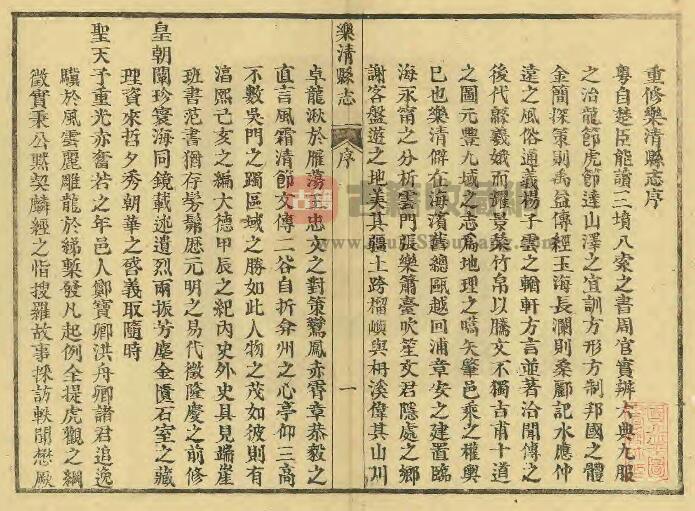 重修樂清縣志序
粵自楚臣能讀三墳八索之書周官實辨大典九服
之治龍節虎節達山澤之宜訓方形方制邦國之體
金簡探策則禹益傳經玉海長瀾則桑酈記水應仲
遠之風俗通義楊子雲之輶軒方言並著洽聞傳之
後代辭羲娥而耀景榮竹帛以騰文不獨吉甫十道
之圖元豐九域之志為地理之嚆矢肇邑乘之權輿
已也樂清僻在海濱舊總甌越回浦章安之建置臨
海永甯之分析雲門張樂簫臺吹笙文君隱處之鄉
謝客盤遊之地美其疆土跨榴嶼與枏溪偉其山川
樂清縣志
序
一
卓龍湫於雁蕩王忠文之對策鸞鳳赤霄章恭毅之
直言風霜清節文傳二谷自折弇州之心亭仰三高
不數吳門之躅區域之勝如此人物之茂如彼則有
淳熙己亥之編大德甲辰之紀內史外史具見端崖
班書范書猶存髣髴歷元明之易代徵隆慶之前修
皇朝闡珍寰海同鏡載述遺烈兩振芳塵金匱石室之藏
理資來哲夕秀朝華之啓義取隨時
聖天子重光赤奮若之年邑人鄭寶卿洪舟卿諸君追逸
驥於風雲麗雕龍於綈槧發凡起例全提虎觀之綱
徵實秉公默契麟經之恉搜羅故事採訪軼聞懋厥